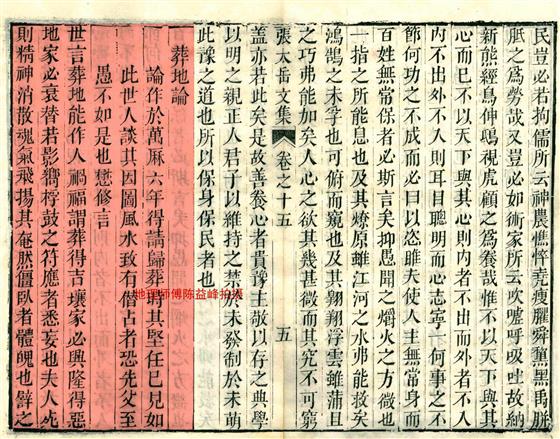 民豈必若拘儒所云神農憔悴堯瘦臞舜黧黑禹胼
胝之爲勞哉又豈必如術家所云吹噓呼吸吐故納
新熊經鳥伸鴟視虎顧之爲養哉惟不以天下與其
心而巳不以天下與其心則内者不出而外者不入
内不出外不入則耳目聰明而心志寧一何事之不
飭何功之不成而必曰以恣睢夫使人主無常身而
百姓無常保者必斯言矣抑愚聞之爝火之方微也
一指之所能息也及其燎原雖江河之水弗能救矣
鴻鵠之未孚也可俯而窺也及其翺翔浮雲雖蒲且
張太岳文集 卷之十五 五
之巧弗能加矣人心之欲其幾甚微而其究不可窮
蓋亦若此矣是故善養心者貴豫主敬以存之典學
以明之親正人君子以維持之禁於未發制於未萌
此豫之道也所以保身保民者也
地理師傅陈益峰拍摄
葬地論
論作於萬曆六年得請歸葬其堅任已見如
此世人談其因圖風水致有借占者恐先父至
愚不如是也懋修言
世言葬地能作人禍福謂葬得吉壤家必興隆得惡
地家必衰替若影嚮桴鼓之符應者悉妄也夫人死
則精神消散魂氣飛揚其奄然僵臥者體魄也譬之